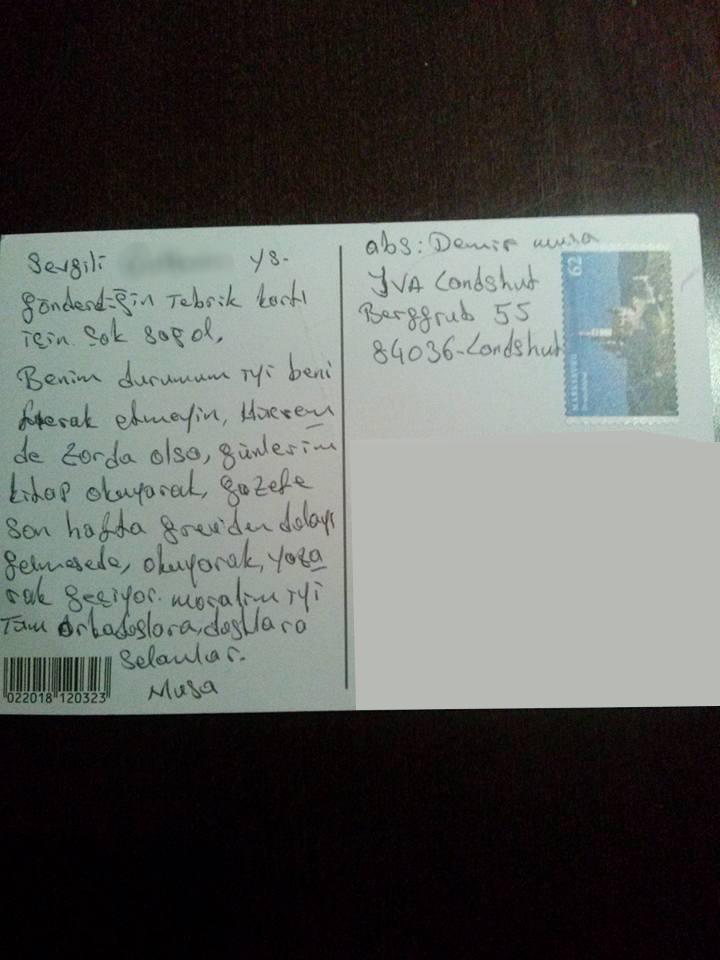 Sevgili ys.
gönderdiğin Tebrik kartı
için Çok sagol.
Benim durumum iyi beni
merak etmeyin, Hücrem
de zorda olsa, günlerim
kitap okuyarak, gazete
son hafta grevden dolayı
gelmesede, okuyarak, yaza
rak geçiyor. moralim iyi
Tüm Arkadaşlara, dostlara
Selamlar.
Musa
022018 120323
abs: Demir musa
JVA Landshut
Berggrub 55
84036-Landshut
62